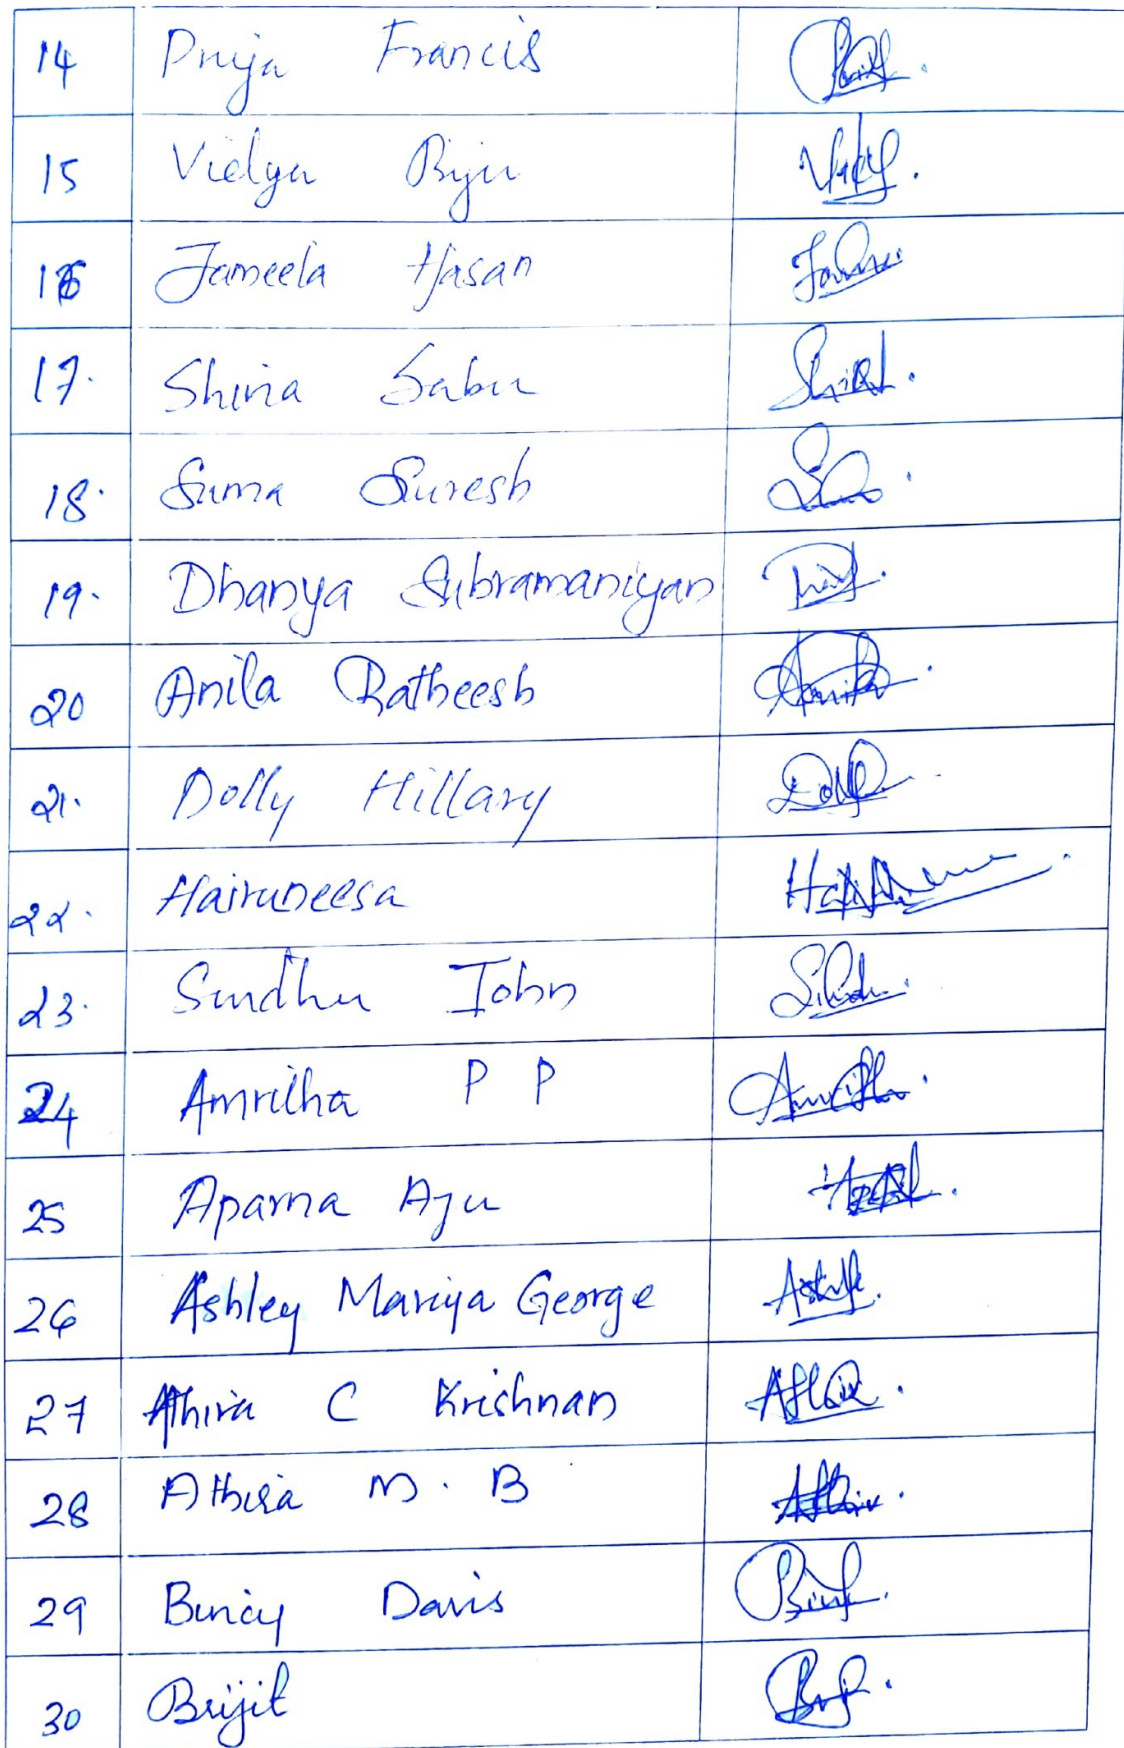 14 Priya Francis
15 Vidya Biju
16 Jameela Hasan
17. Shiria Sabu
18. Suma Suresh
19. Dhanya Subramaniyan
20 Anila Ratheesh
21. Dolly Hillary
22. Hairuneesa
23. Sindhu John
24 Amritha P P
25 Aparna Aju
26 Ashley Mariya George
27 Athira C Krishnan
28 Athira M. B
29 Bincy Davis
30 Brijit